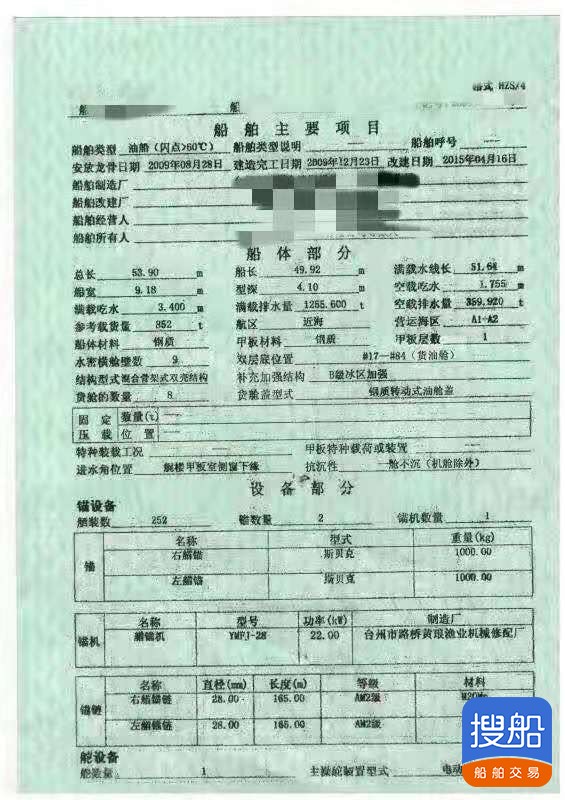 格式 HZS/4
船 船
船 舶 主 要 项 目
船舶类型 油船（闪点>60℃） 船舶类型说明 —— 船舶呼号 ——
安放龙骨日期 2009年08月28日 建造完工日期 2009年12月23日 改建日期 2015年04月16日
船舶制造厂
船舶改建厂
船舶经营人
船舶所有人
船 体 部 分
总长 53.90 m 船长 49.92 m 满载水线长 51.64 m
船宽 9.18 m 型深 4.10 m 空载吃水 1.755 m
满载吃水 3.400 m 满载排水量 1255.600 t 空载排水量 359.920 t
参考载货量 852 t 航区 近海 营运海区 A1-A2
船体材料 钢质 甲板材料 钢质 甲板层数 1
水密横舱壁数 9 双层底位置 #17-#84（货油舱）
结构型式 混合骨架式双壳结构 补充加强结构 B级冰区加强
货舱的数量 8 货舱盖型式 钢质转动式油舱盖
固定压载 数量(t) ——
位置 ——
特种装载工况 —— 甲板特种载荷或装置 ——
进水角位置 艉楼甲板室侧窗下缘 抗沉性 一舱不沉（机舱除外）
设 备 部 分
锚设备
舾装数 252 锚数量 2 锚机数量 1
锚 名称 型式 重量(kg)
右艏锚 斯贝克 1000.00
左艏锚 斯贝克 1000.00
锚机 名称 型号 功率(kW) 制造厂
艏锚机 YMFJ-28 22.00 台州市路桥黄琅渔业机械修配厂
锚链 名称 直径(mm) 长度(m) 等级 材料
右艏锚链 28.00 165.00 AM2级
左艏锚链 28.00 165.00 AM2级
舵设备
舵数量 1 主操舵装置型式 电动
搜船
船舶交易